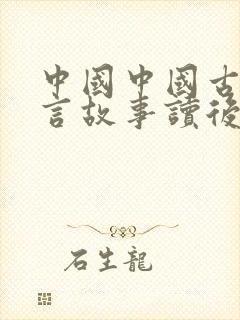 中國中國古
言故事讀後
石生龍